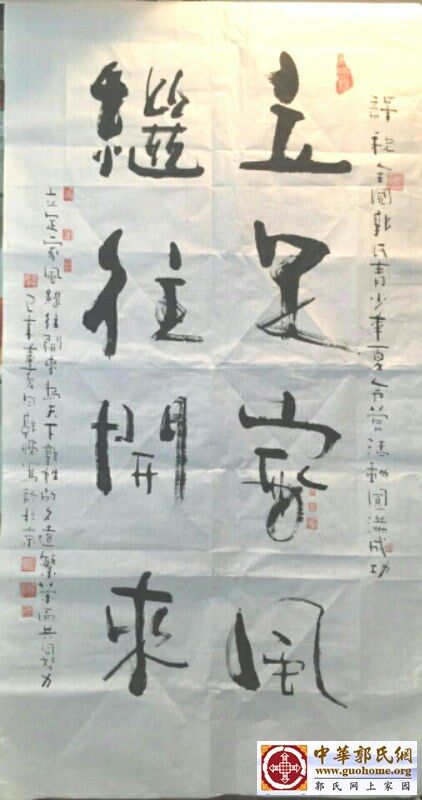 謹祝全國郭氏青少年夏令营活動圓满成功
立足家風
繼往開來
立定家風繼往開來為天下郭姓的久遠繁荣而共同努力
夏月郭寫於北京
中華郭氏網
www.guohome.org
郭氏网上家园